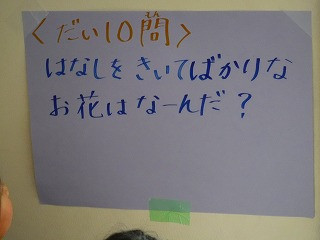 <だい10問>
はなしをきいてばかりな
お花はなーんだ?